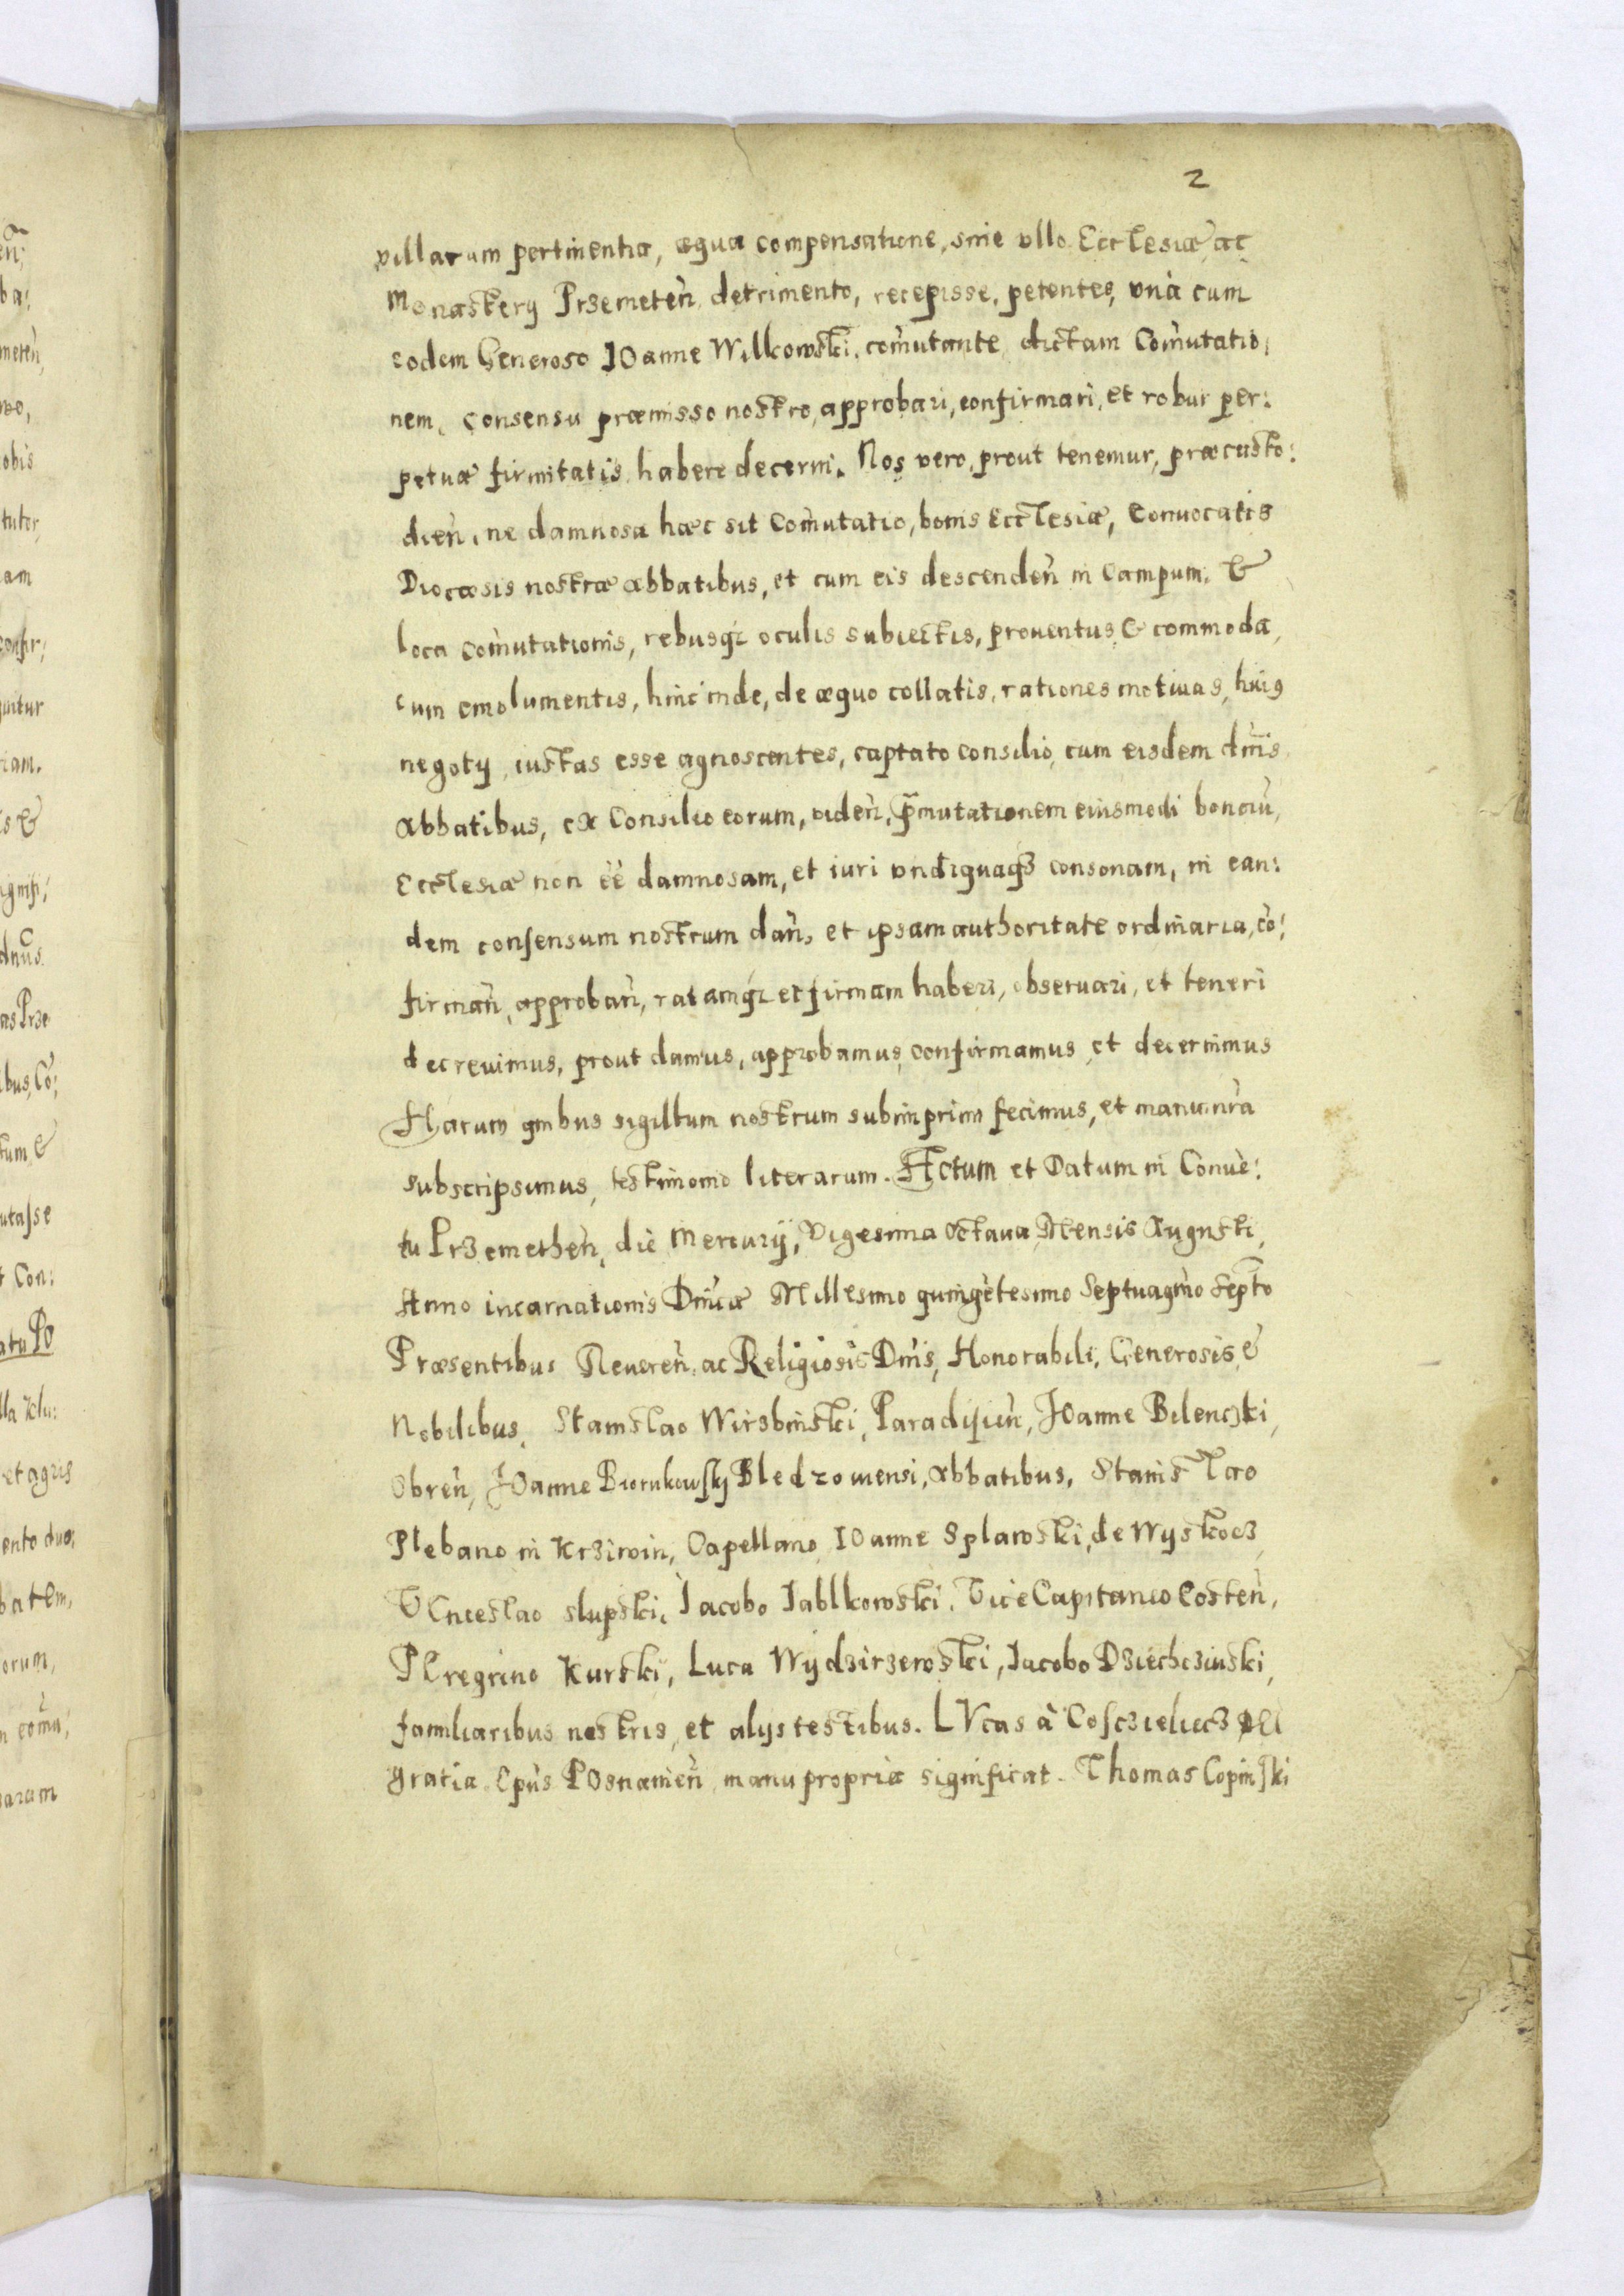 2
villarum pertinentia, æqua compensatione, sine vllo Ecclesiæ ac
Monastery Przemeteǹ detrimento, recepisse, petentes, vnà cum
eodem Generoso IOanne Wilkowski, com̀utante dictam Com̀utatio,
nem, Consensu præmisso nostro, approbari, confirmari, et robur per:
petuæ firmitatis habere decerni. Nos vero, prout tenemur, præcusto:
dieǹ, ne damnosa hæc sit Com̀utatio, bonis Ecclesiæ, Conuocatis
Diocæsis nostræ abbatibus, et cum eis descendeǹ in Campum, &
loca com̀utationis, rebusqz oculis subiectis, prouentus & commoda,
cum emolumentis, hinc inde, de æquo collatis, rationes motiuas, huiꝰ
negoty, iustas esse agnoscentes, captato consilio, cum eisdem dm̃is
Abbatibus, ex Consilio eorum, videǹ, p̃mutationem eiusmodi bonorù,
Ecclesiæ non èè damnosam, et iuri vndiquaqz consonam, in ean:
dem consensum nostrum daǹ, et ipsam authoritate ordinaria, cò:
firmaǹ, approbaǹ, ratamqz et firmam haberi, obseruari, et teneri
decreuimus, prout damus, approbamus, confirmamus et decernimus
Harum qmbus sigillum nostrum subimprimi fecimus, et manu nr̀a
subscripsimus, testimonio literarum. Actum et Datum in Conuè:
tu Przemetheǹ, die Mercurij, Vigesima Octaua Mensis Augusti,
Anno incarnationis Dnicæ Millesimo quingètesimo Septuagm̀o Septo
Præsentibus Reuereǹ, ac Religiosis Dnìs, Honorabili, Generosis, &
Nobilibus, Stanislao Wirsbinski, Paradisieǹ, IOanne Bilenczki,
Obreǹ, IOanne Biornkowskij Bledzowiensi, Abbatibus, Stanislao
Plebano in Krziwin, Capellano IOanne Splawski, de Wyskocz,
VEnceslao slupski, Iacobo Iablkowski, Vice Capitaneo Costeǹ,
PEregrino Kurski, Luca Wydzirzewski, Iacobo Dziechczinski,
familiaribus nostris, et alys testibus. LVcas à Coscieliecz DEi
gratia Epùs POsnanieǹ manu propria significat. Thomas Copinski